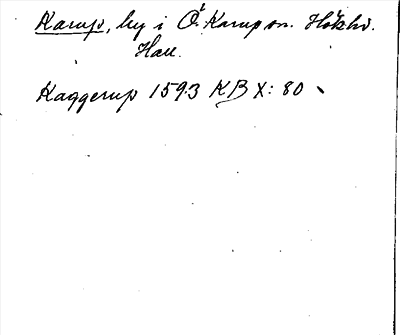 Karup, by i Ö. Karup sn. Hökshd.
Hall.
Kaggerup 1593 KB X: 80